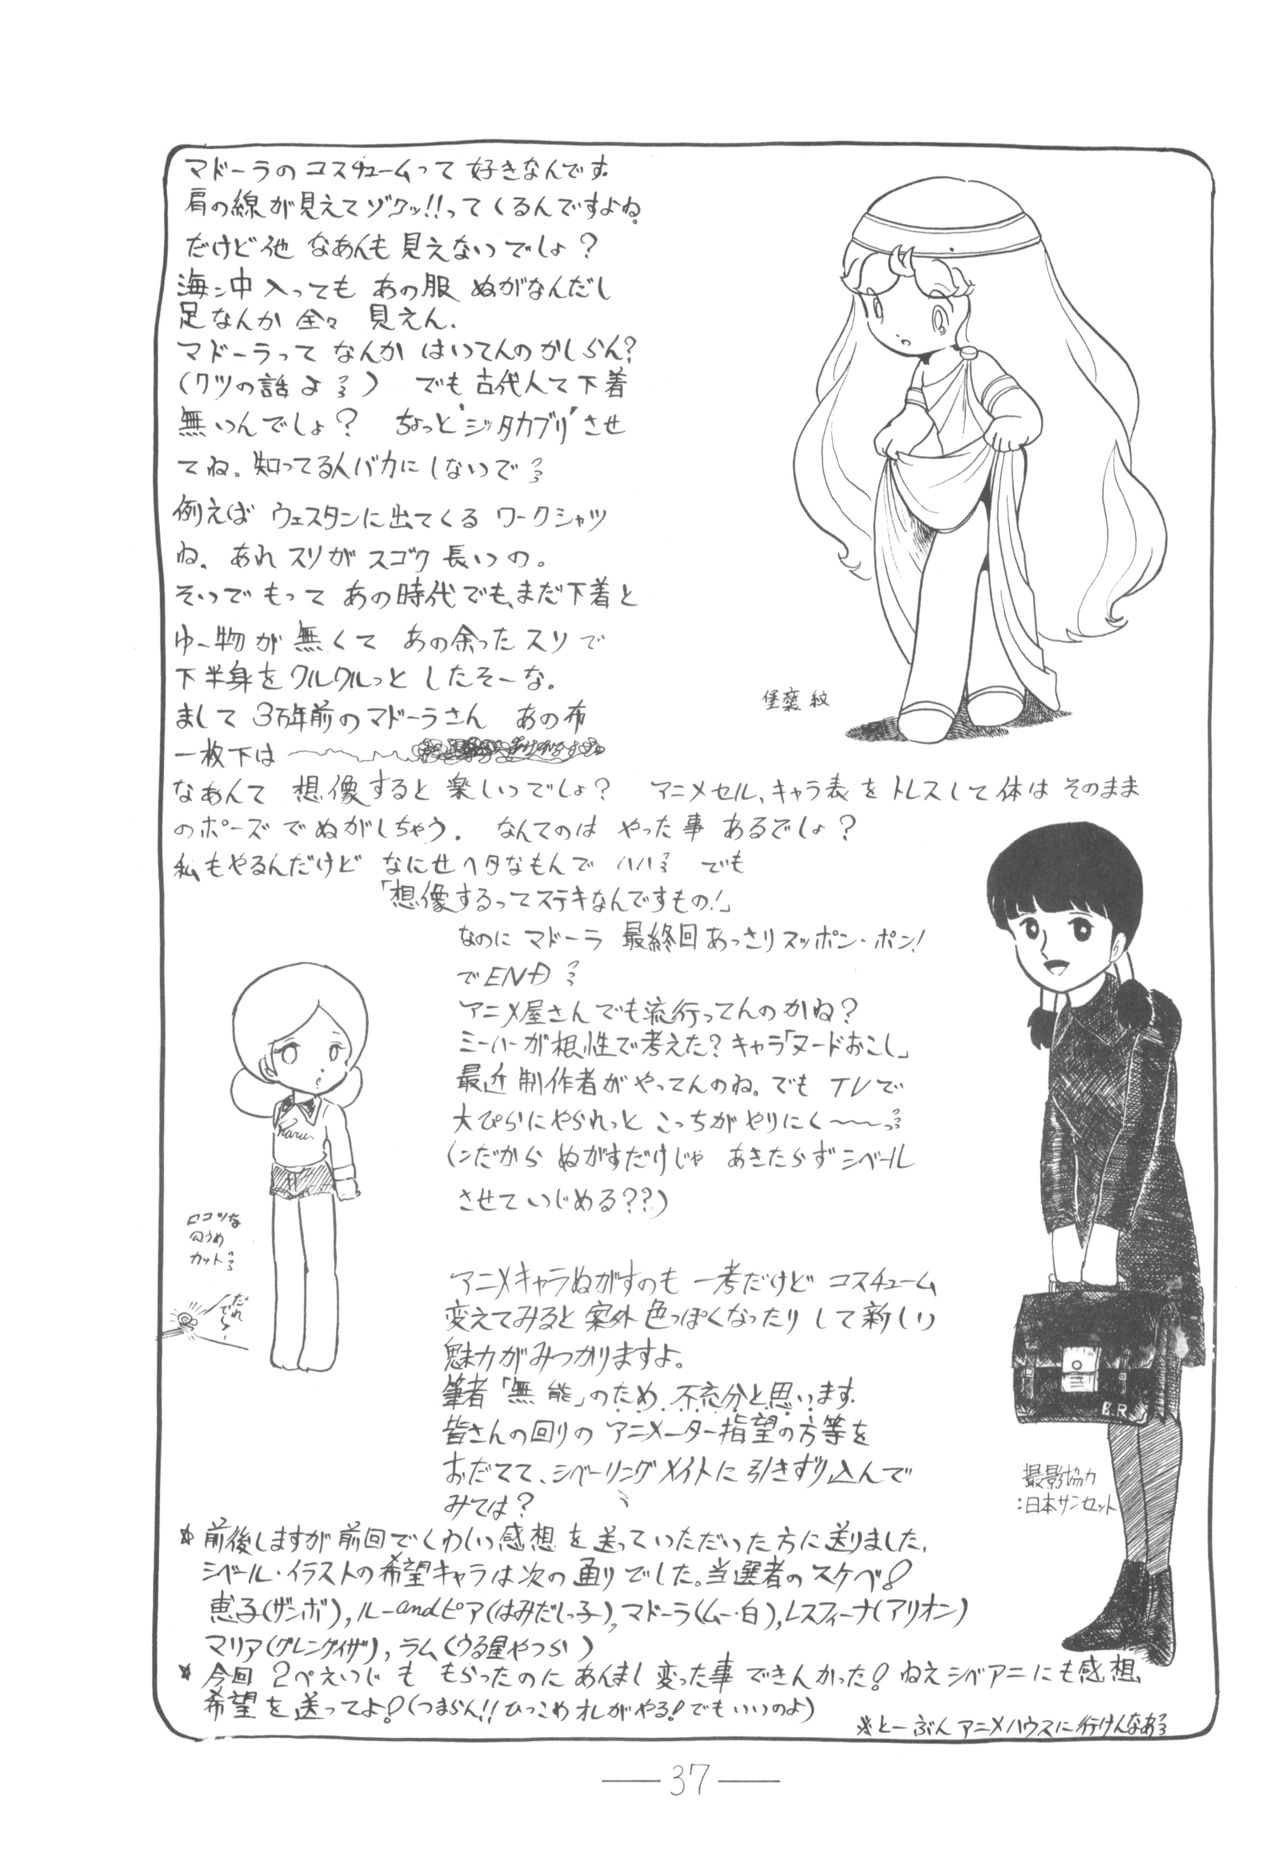 マドーラのコスチュームって好きなんです。
肩の線が見えてゾクッ!!ってくるんですよね。
だけど他 なあんも見えないでしょ?
海ン中入っても あの服 ぬがなんだし
足なんか 全々 見えん.
マドーラって なんか はいてんのかしらん?
(クツの話よ) でも古代人て下着
無いんでしょ? ちょっと"シッタカブリ"させ
てね。知ってる人バカにしないで
例えば ウェスタンに出てくる ワークシャツ
ね. あれスソがスゴク長いの。
そいでもって あの時代でも、まだ下着と
ゆー物が無くて あの余ったスソで
下半身をクルクルっと したそーな。
まして 3万年前のマドーラさん あの布
一枚下は
なあんて 想像すると楽しいでしょ? アニメセル、キャラ表をトレスして体はそのまま
のポーズでぬがしちゃう. なんてのは やった事あるでしょ?
私もやるんだけど なにせヘタなもんで ハハ でも
「想像するってステキなんですもの!」
なのに マドーラ 最終回あっさりスッポン・ポン!
でEND
アニメ屋さんでも流行ってんのかね?
ミーハーが根性で考えた?キャラ「ヌードおこし」
最近 制作者がやってんのね。でも TVで
大ぴらにやられっと こっちがやりにく〜〜っ
(ンだから ぬがすだけじゃ あきたらずシベール
させていじめる??)
アニメキャラぬがすのも 一考だけど コスチューム
変えてみると案外色っぽくなったりして新しい
魅力がみつかりますよ。
筆者「無能」のため 不充分と思います.
皆さんの回りの アニメーター指望の方等を
おだてて、シベーリングメイトに引きずり込んで
みては?
* 前後しますが前回でくわしい感想を送っていただいた方に送りました.
シベール・イラストの希望キャラは次の通りでした。当選者のスケベ!
恵子(ザンボ), ルーandピア(はみだしっ子), マドーラ(ムー・白), レスフィーナ(アリオン)
マリア(グレンダイザ), ラム(うる星やつら)
* 今回 2ぺえいじも もらったのに あんまし変った事できんかった! ねえシベアニにも感想
希望を送ってよ!(つまらん!!ひっこめオレがやる!でもいいのよ)
※とーぶんアニメハウスに行けんなあ
Karu
ロコツな
穴うめ
カット
だれ
でぇ〜!
E.R.
撮影協力
:日本サンセット
—37—